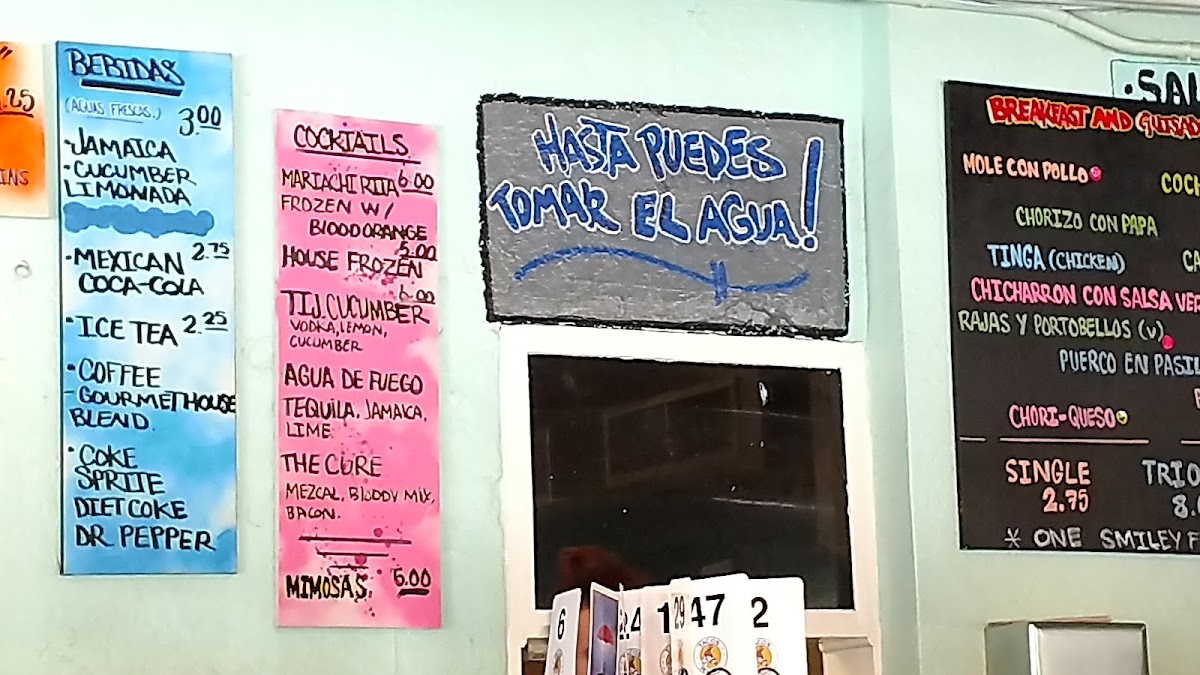 .25
INS
BEBIDAS
(AGUAS FRESCAS.) 3.00
·JAMAICA
·CUCUMBER
LIMONADA
·MEXICAN 2.75
COCA-COLA
·ICE TEA 2.25
·COFFEE
-GOURMET HOUSE
BLEND.
·COKE
SPRITE
DIET COKE
DR PEPPER
COCKTAILS
MARIACHI RITA 6.00
FROZEN W/
BLOOD ORANGE
HOUSE FROZEN 5.00
TIJ. CUCUMBER 6.00
VODKA, LEMON,
CUCUMBER
AGUA DE FUEGO
TEQUILA, JAMAICA,
LIME
THE CURE
MEZCAL, BLOODY MIX,
BACON.
MIMOSAS 5.00
HASTA PUEDES
TOMAR EL AGUA!
·SAL
BREAKFAST AND GUISAD
MOLE CON POLLO
COCH
CHORIZO CON PAPA
TINGA (CHICKEN)
CA
CHICHARRON CON SALSA VER
RAJAS Y PORTOBELLOS (V)
PUERCO EN PASIL
CHORI-QUESO
SINGLE
2.75
TRIO
8.
* ONE SMILEY F
6
4
1
29
47
2
TACOS